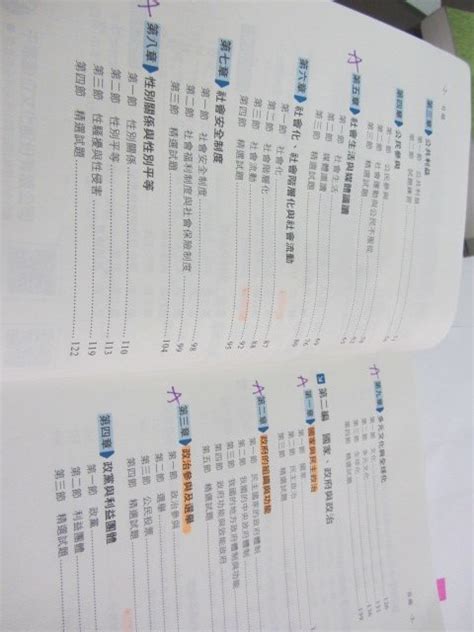 第三章 公共利益
第四章 公民參與
第一節 公民參與
第二節 社會運動與公民不服從
第三節 精選試題
第五章 社會生活與媒體識讀
第一節 社會生活
第二節 媒體識讀
第三節 精選試題
第六章 社會化、社會階層化與社會流動
第一節 社會化
第二節 社會階層化 87
第三節 社會流動 88
第四節 精選試題 92
第七章 社會安全制度 95
第一節 社會安全制度 98
第二節 社會福利制度與社會保險制度 99
第三節 精選試題 104
第八章 性別關係與性別平等
第一節 性別關係 110
第二節 性別平等 113
第三節 性騷擾與性侵害 119
第四節 精選試題 122
第九章 多元文化與全球化
第四節 精選試題
第二編 國家、政府與政治
第一章 國家與民主政治
第一節 國家
第二節 民主政治
第三節 精選試題
第二章 政府的組織與功能
第一節 民主國家的政府體制
第二節 我國的中央政府體制
第三節 我國的地方政府體制與功能
第四節 政府功能與效能政府
第五節 精選試題
第三章 政治參與及選舉
第一節 政治參與
第二節 選舉
第三節 公民投票
第四節 精選試題
第四章 政黨與利益團體
第一節 政黨
第二節 利益團體
第三節 精選試題